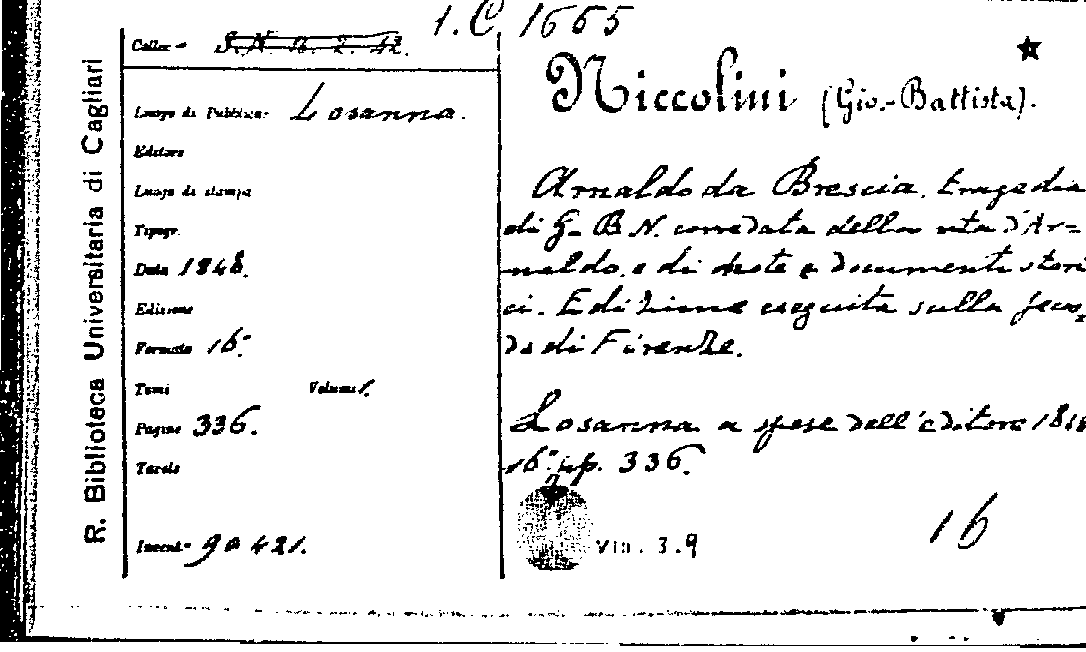 1. C 1655
R. Biblioteca Universitaria di Cagliari
Colloc.ne S.N. 2. 42.
Luogo di Pubblicaz. Losanna.
Editore
Luogo di stampa
Tipogr.
Data 1848.
Edizione
Formato 16.°
Tomi Volumi 1.
Pagine 336.
Tavole
Invent.
Niccolini (Gio.-Battista).
Arnaldo da Brescia, tragedia
di G. B. N. corredata della vita d'Ar=
naldo, e di note e documenti stori
ci. Edizione eseguita sulla secon
da di Firenze.
Losanna a spese dell'editore 1848
16.° pp. 336.
VIII. 3.9
16